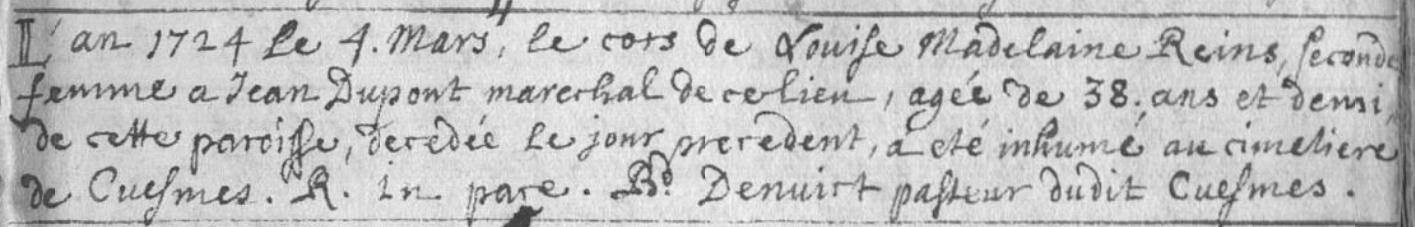 L'an 1724 le 4. Mars, le cors de Louise Madelaine Reins, seconde
femme a Jean Dupont marechal de ce lieu, ageé de 38. ans et demi,
de cette paroisse, decedée le jour precedent, a eté inhumé au cimetiere
de Cuesmes. R. in pace. Bd. Denuict pasteur dudit Cuesmes.